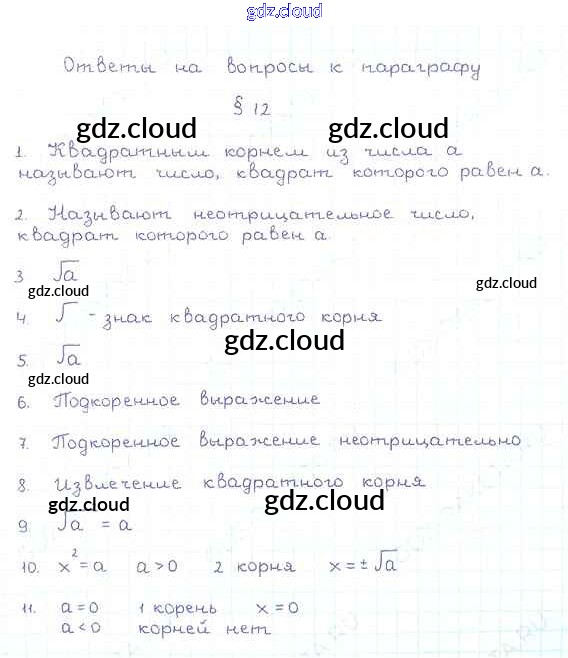 gdz.cloud
Ответы на вопросы к параграфу
§ 12
gdz.cloud gdz.cloud
1. Квадратным корнем из числа а
называют число, квадрат которого равен а.
2. Называют неотрицательное число,
квадрат которого равен а.
3 √a
gdz.cloud gdz.cloud
4. √ - знак квадратного корня
gdz.cloud
5. √a
gdz.cloud
6. Подкоренное выражение
7. Подкоренное выражение неотрицательно
8. Извлечение квадратного корня
gdz.cloud gdz.cloud
9. √a = a
10. x² = a a > 0 2 корня x = ± √a
11. a = 0 1 корень x = 0
a < 0 корней нет